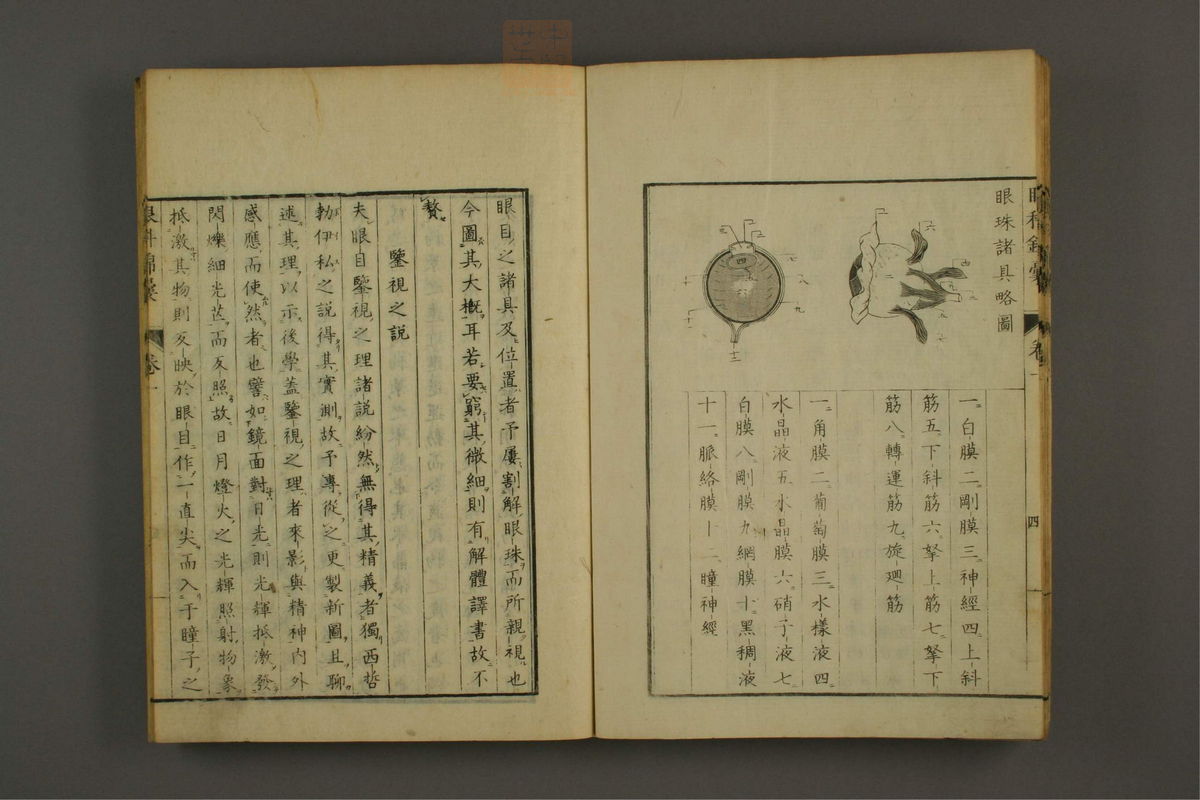 眼科錦囊 卷一 四
眼珠諸具略圖
一白膜二剛膜三神經四上斜
筋五下斜筋六拏上筋七拏下
筋八轉運筋九旋廻筋
一角膜二葡萄膜三水樣液四
水晶液五水晶膜六硝子液七
白膜八剛膜九網膜十黑稠液
十一脈絡膜十二瞳神經
眼目之諸具及位置者予屢割解眼珠而所親視也
今圖其大概耳若要窮其微細則有解體譯書故不
贅
鑒視之說
夫眼目鑒視之理諸說紛然無得其精義者獨西哲
勃伊私之說得其實測故予專從之更製新圖且聊
述其理以示後學蓋鑒視之理者來影與精神內外
感應而使然者也譬如鏡面對日光則光輝抵激發
閃爍細光芒而反照故日月燈火之光輝照射物象
抵激其物則反映於眼目作一直尖而入于瞳子之
眼科錦囊 卷一